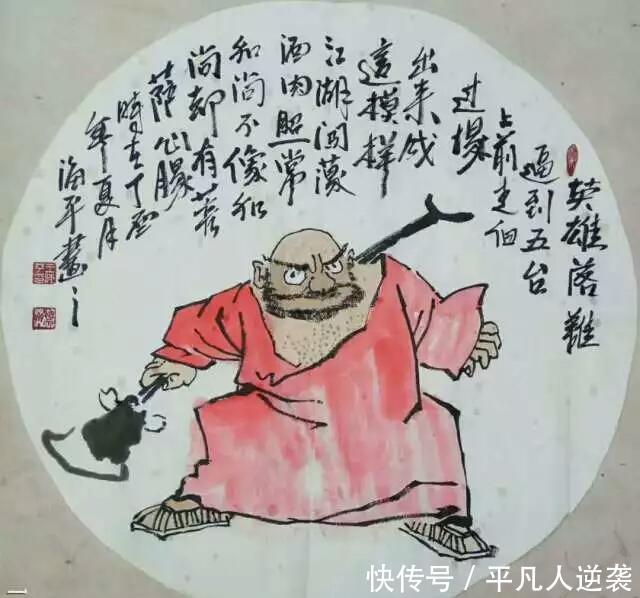 英雄落難
逼到五台
上前走個
过場
出来成
這模樣
江湖闯蕩
酒肉照常
和尚不像和
尚却有菩
薩心腸
時在丁酉
年夏月
海平畫之
快传号／平凡人逆袭